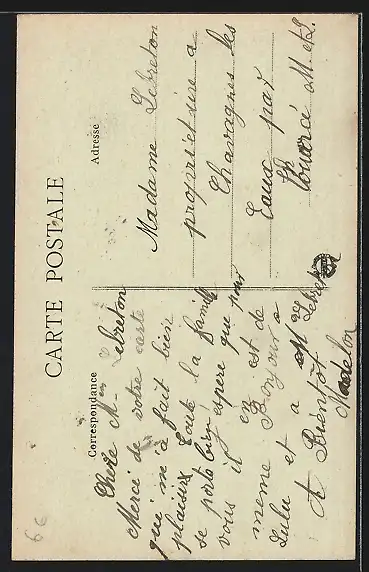 CARTE POSTALE
Correspondance
Adresse
Chère Me Lebreton
Merci de votre carte
qui m'a fait bien
plaisir Toute la famille
se porte bien espere que pour
vous il en est de
meme Bonjour a
Lulu et a Mr Lebreton
A Bientôt
Madame Lebreton
propriétaire a
Chavagnes les
Eaux par
Thouarcé M et L.
66